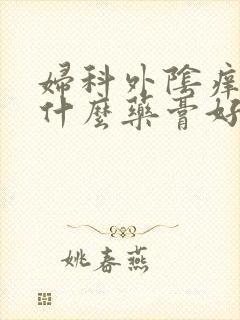 婦科外陰痒
什麼藥膏好
姚春燕